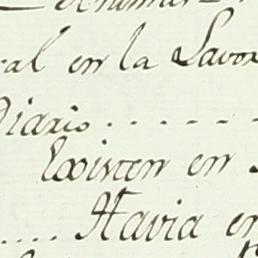 en la Lavor
Diario . . . . . . .
Existen en
..... Havia en